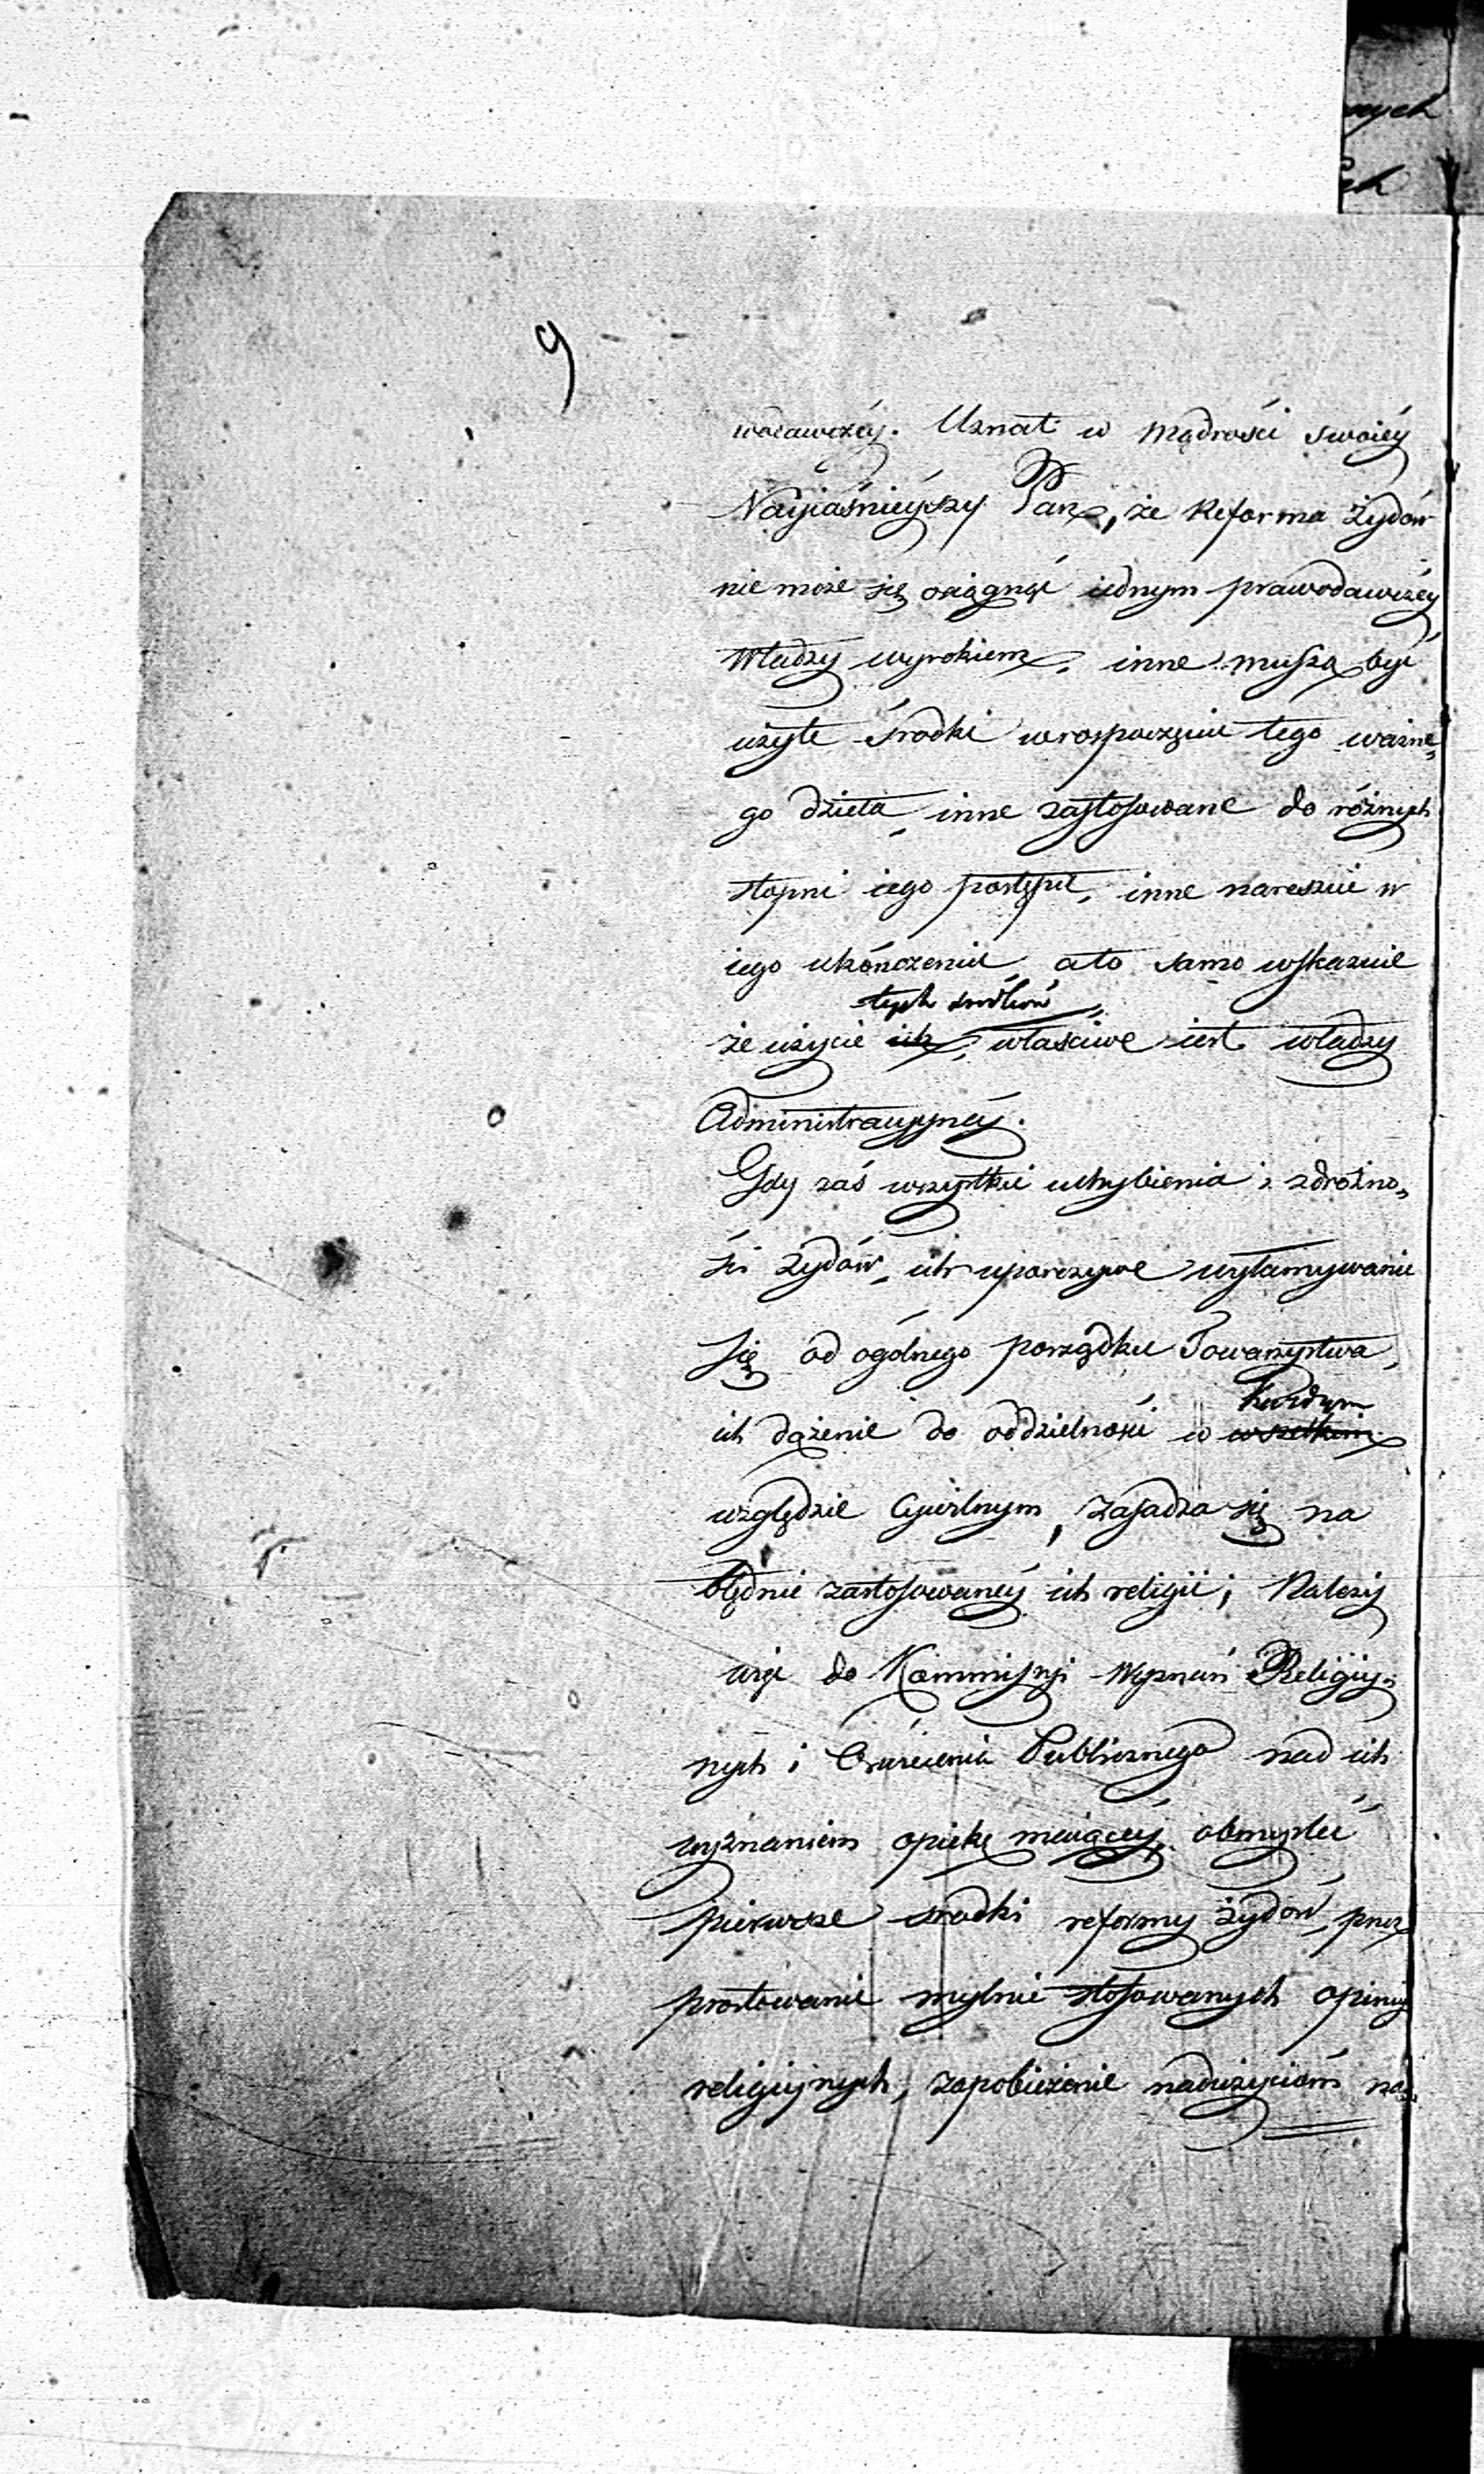 nych
ch
9
wodawczéy. Uznał w mądrości swoiéy
Nayiaśnieyszy Pan, że Reforma Żydów
nie może się osiągnąć iednym prawodawczéy
władzy wyrokiem, inne muszą być
użyte środki w rozpoczęciu tego ważne„
go dzieła, inne zastosowane do różnych
stopni iego postępu, inne nareszcie w
iego ukończeniu, a to samo wskazuie
tych środków
że użycie ich, właściwe iest władzy
Administracyynéy.
Gdy zaś wszystkie uchybienia i zdrożno„
ści żydów, ich uporczywe wyłamywanie
się od ogólnego porządku Towarzystwa,
każdym
ich dążenie do oddzielności w wszelkim
względzie Cywilnym, zasadza się na
błędnie zastosowanéy ich religii; Należy
więc do Kommissyi Wyznań Religiy„
nych i Oświecenia Publicznego nad ich
wyznaniem opiekę maiącéy, obmyśleć
pierwsze środki reformy żydów, przez
prostowanie mylnie stosowanych opiniy
religiynych, zapobieżenie nadużyciom na„